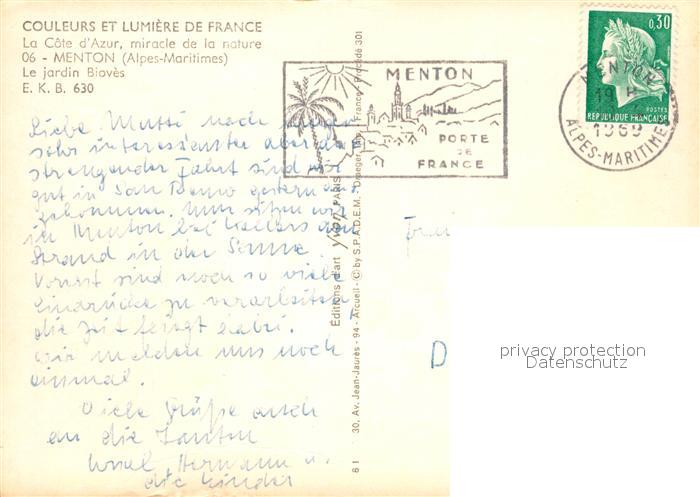 COULEURS ET LUMIÈRE DE FRANCE
La Côte d'Azur, miracle de la nature
06 - MENTON (Alpes-Maritimes)
Le jardin Biovès
E. K. B. 630
0,30
POSTES
REPUBLIQUE FRANÇAISE
MENTON
19 H
1969
ALPES-MARITIMES
MENTON
PORTE
DE
FRANCE
Liebe Mutti nach
sehr interessanter aber
strengender Fahrt sind wir
gut in San Remo gestern
gekommen. Nun sitzen wir
in Menton bei
Strand in der Sonne.
Vorerst sind noch so viele
Eindrücke zu verarbeiten,
die Zeit fliegt dabei.
Wir melden uns noch
einmal.
Viele Grüße auch
an die Tanten
Hermann u.
die Kinder
Editions d'art Yvon PARIS
30, Av. Jean-Jaurès - 94 - Arcueil - © by S.P.A.D.E.M. - Draeger France - Procédé 301
61
Frau
D
privacy protection
Datenschutz